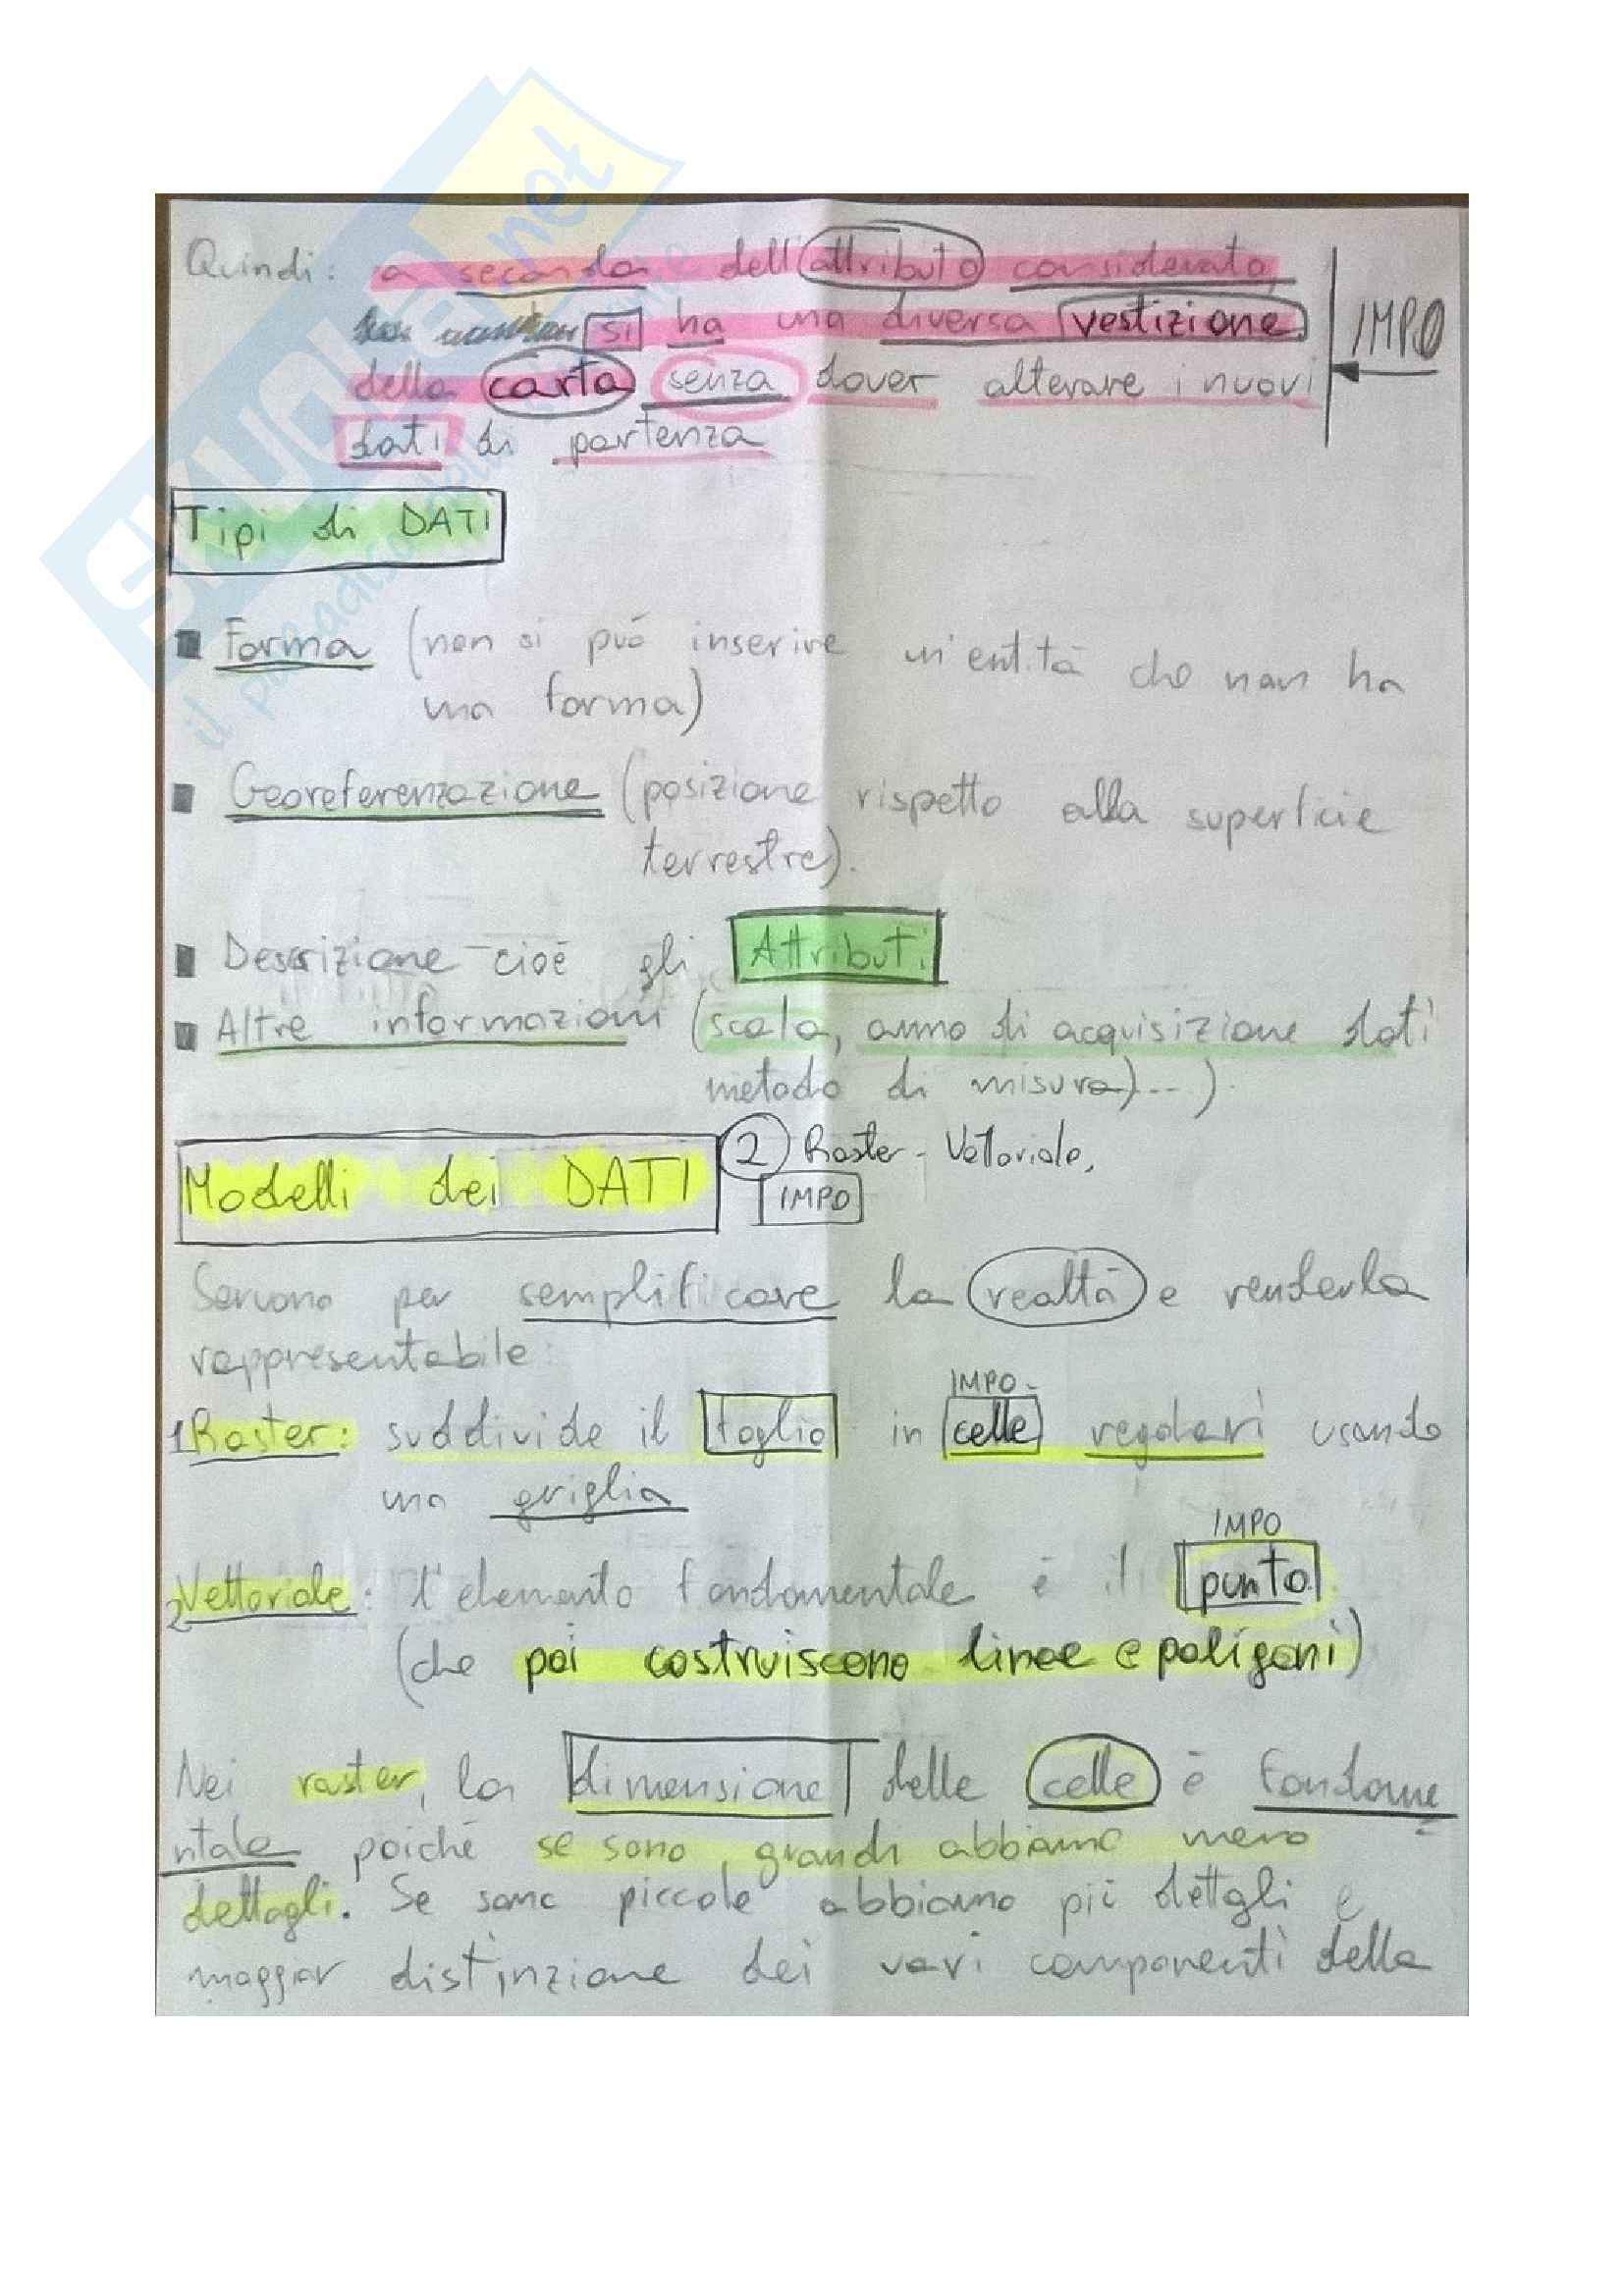 Quindi: a seconda dell'attributo considerato,
si ha una diversa vestizione
IMPO
della carta senza dover alterare i nuovi
dati di partenza
Tipi di DATI
Forma (non si può inserire un'entità che non ha
una forma)
Georeferenzazione (posizione rispetto alla superficie
terrestre).
Descrizione cioè gli Attributi
Altre informazioni (scala, anno di acquisizione dati
metodo di misura)...).
Modelli dei DATI 2 Raster - Vettoriale,
IMPO
Servono per semplificare la realtà e renderla
rappresentabile:
IMPO -
1 Raster: suddivide il foglio in celle regolari usando
una griglia
IMPO
2 Vettoriale: l'elemento fondamentale è il punto
(che poi costruiscono linee e poligoni)
Nei raster, la dimensione delle celle è fondame
ntale poiché se sono grandi abbiamo meno
dettagli. Se sono piccole abbiamo più dettagli e
maggior distinzione dei vari componenti della
SKUOLA.net
il paradiso